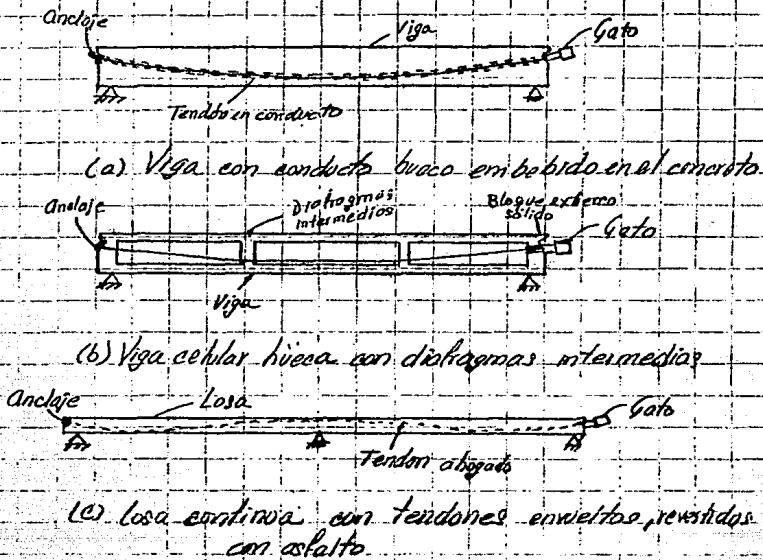 Anclaje
Viga
Gato
Tendon en conducto
(a) Viga con conducto hueco embebido en el concreto.
Anclaje
Diafragmas
intermedios
Bloque extremo
sólido
Gato
Viga
(b) Viga celular hüeca con diafragmas intermedios
Anclaje
Losa
Gato
Tendon ahogado
(c) losa continua con tendones envueltos, revestidos
con asfalto.